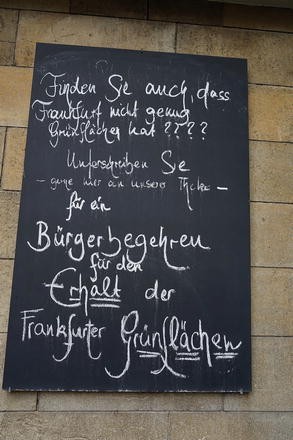 Finden Sie auch, dass
Frankfurt nicht genug
Grünflächen hat ????
Unterschreiben Sie
- gerne hier an unserer Theke -
für ein
Bürgerbegehren
für den
Erhalt der
Frankfurter Grünflächen